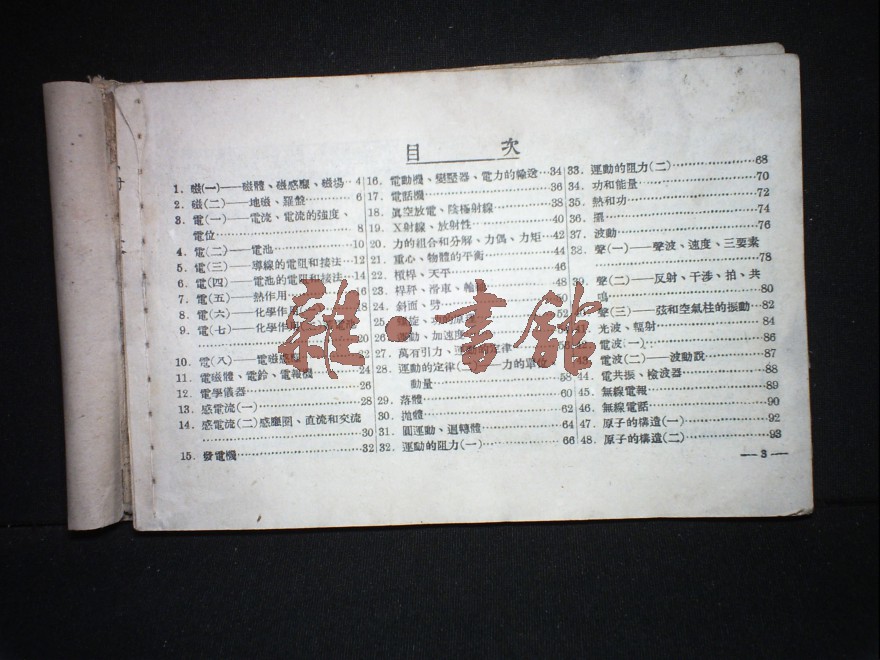 目 次
1. 磁(一)——磁體、磁感應、磁場…4
2. 磁(二)——地磁、羅盤…6
3. 電(一)——電流、電流的強度、
電位…8
4. 電(二)——電池…10
5. 電(三)——導線的電阻和接法…12
6. 電(四)——電池的電阻和接法…14
7. 電(五)——熱作用…16
8. 電(六)——化學作用
9. 電(七)——化學作用
20
10. 電(八)——電磁感應…22
11. 電磁體、電鈴、電報機…24
12. 電學儀器…26
13. 感電流(一)…28
14. 感電流(二)感應圈、直流和交流
…30
15. 發電機…32
16. 電動機、變壓器、電力的輸送…34
17. 電話機…36
18. 眞空放電、陰極射線…38
19. X射線、放射性…40
20. 力的組合和分解、力偶、力矩…42
21. 重心、物體的平衡…44
22. 槓桿、天平…46
23. 桿秤、滑車、輪
24. 斜面、劈
25
26. 運動、加速度
27. 萬有引力、運動的定律
28. 運動的定律——力的單位
動量…58
29. 落體…60
30. 拋體…62
31. 圓運動、迴轉體…64
32. 運動的阻力(一)…66
33. 運動的阻力(二)…68
34. 功和能量…70
35. 熱和功…72
36. 擺…74
37. 波動…76
38. 聲(一)——聲波、速度、三要素
…78
聲(二)——反射、干涉、拍、共
鳴…80
聲(三)——弦和空氣柱的振動…82
光波、輻射…84
電波(一)…86
電波(二)——波動說…87
44. 電共振、檢波器…88
45. 無線電報…89
46. 無線電話…90
47. 原子的構造(一)…92
48. 原子的構造(二)…93
—3—
雜·書館